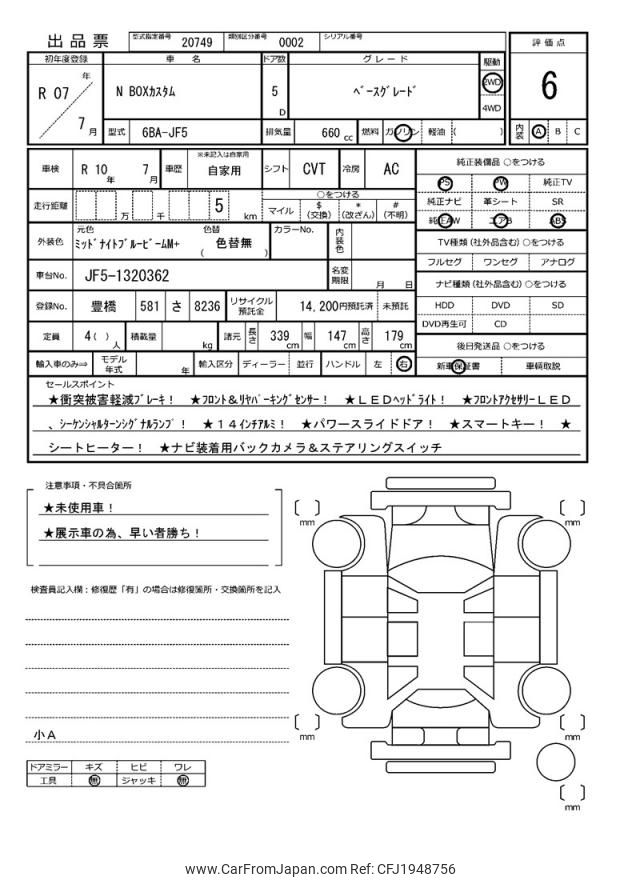 出品票 型式指定番号 20749 類別区分番号 0002 シリアル番号
評価点
6
初年度登録 車名 ドア数 グレード 駆動
R 07 年 7 月 N BOXカスタム 5 D ベースグレード 2WD 4WD
型式 6BA-JF5 排気量 660 cc 燃料 ガソリン 軽油 ( )
内装 A B C
車検 R 10 年 7 月 車歴 ※未記入は自家用 自家用 シフト CVT 冷房 AC
走行距離 万 千 5 km
○をつける
マイル $(交換) *(改ざん) #(不明)
外装色 元色 ミッドナイトブルービームM+ 色替 ( 色替無 ) カラーNo. 内装色
車台No. JF5-1320362 名変期限 月 日
登録No. 豊橋 581 さ 8236 リサイクル預託金 14,200円預託済 未預託
定員 4( ) 人 積載量 kg 諸元 長さ 339 cm 幅 147 cm 高さ 179 cm
輸入車のみ⇒ モデル年式 年 輸入区分 ディーラー 並行 ハンドル 左 右
純正装備品 ○をつける
PS PW 純正TV
純正ナビ 革シート SR
純正AW エアB ABS
TV種類 (社外品含む) ○をつける
フルセグ ワンセグ アナログ
ナビ種類 (社外品含む) ○をつける
HDD DVD SD
DVD再生可 CD
後日発送品 ○をつける
新車保証書 車輌取説
セールスポイント
★衝突被害軽減ブレーキ! ★フロント&リヤパーキングセンサー! ★LEDヘッドライト! ★フロントアクセサリーLED
、シーケンシャルターンシグナルランプ! ★14インチアルミ! ★パワースライドドア! ★スマートキー! ★
シートヒーター! ★ナビ装着用バックカメラ&ステアリングスイッチ
注意事項・不具合箇所
★未使用車!
★展示車の為、早い者勝ち!
検査員記入欄:修復歴「有」の場合は修復箇所・交換箇所を記入
小A
ドアミラー キズ ヒビ ワレ
工具 無 ジャッキ 無
mm
mm
mm
mm
mm
www.CarFromJapan.com Ref: CFJ1948756